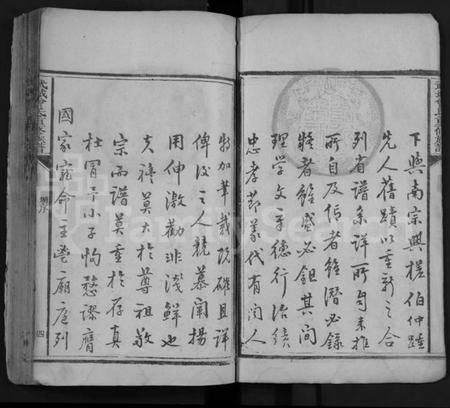 下與南宗興槎伯仲踵
先人舊蹟以重新之合
列省譜系詳所自來推
所自及信者雖潛必錄
將者雖盛必鉏其間
理學文章德行治績
忠孝節義代有聞人
特加筆載說確且詳
俾後之人競慕闡揚
用伸激勸非淺鮮也
夫禘莫大於尊祖敬
宗而譜莫重於存真
杜冒予小子恂愁謬膺
國家寵命主鬯廟庭列
序
四